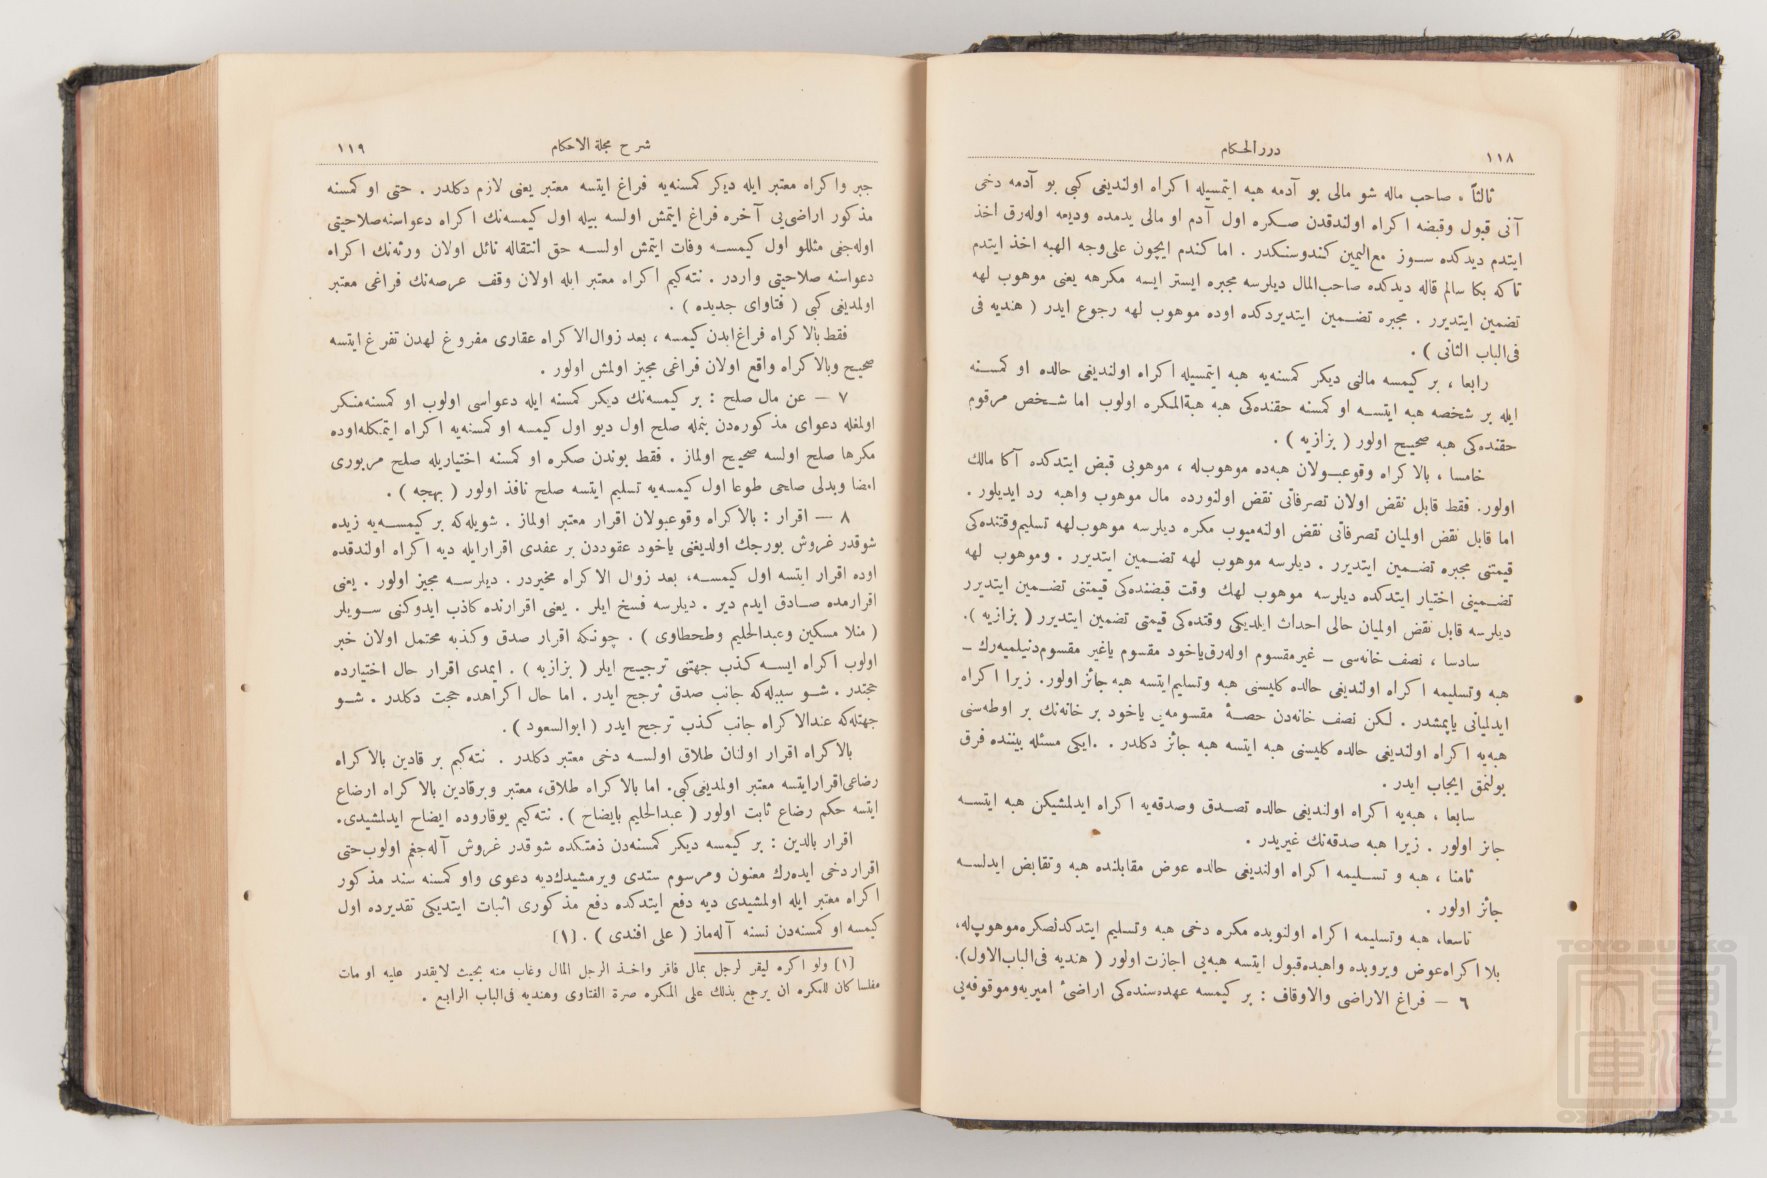 ١١٨
دررالحكام
ثالثاً ، صاحب ماله شو مالی بو آدمه هبه ایتمسیله اكراه اولندیغی كبی بو آدمه دخی
آنی قبول وقبضه اكراه اولندقدن صكره اول آدم او مالی یدمده ودیعه اوله‌رق اخذ
ایتدم دیدكده سوز مع‌الیمین كندوسنكدر . اما كندم ایچون علی‌وجه الهبه اخذ ایتدم
تاكه بكا سالم قاله دیدكده صاحب‌المال دیلرسه مجبره ایستر ایسه مكرهه یعنی موهوب لهه
تضمین ایتدیرر . مجبره تضمین ایتدیردكده اوده موهوب لهه رجوع ایدر ( هندیه فی
فی‌الباب الثانی ) .
رابعا ، بر كیمسه مالنی دیكر كمسنه‌یه هبه ایتمسیله اكراه اولندیغی حالده او كمسنه
ایله بر شخصه هبه ایتسه او كمسنه حقنده‌كی هبه هبةالمكره اولوب اما شخص مرقوم
حقنده‌كی هبه صحیح اولور ( بزازیه ) .
خامسا ، بالاكراه وقوعبولان هبه‌ده موهوب‌له ، موهوبی قبض ایتدكده آكا مالك
اولور. فقط قابل نقض اولان تصرفاتی نقض اولنورده مال موهوب واهبه رد ایدیلور .
اما قابل نقض اولمیان تصرفاتی نقض اولنه‌میوب مكره دیلرسه موهوب‌لهه تسلیم‌وقتنده‌كی
قیمتنی مجبره تضمین ایتدیرر . دیلرسه موهوب لهه تضمین ایتدیرر . وموهوب لهه
تضمینی اختیار ایتدكده دیلرسه موهوب لهك وقت قبضنده‌كی قیمتنی تضمین ایتدیرر
دیلرسه قابل نقض اولمیان حالی احداث ایلدیكی وقتده‌كی قیمتی تضمین ایتدیرر ( بزازیه ).
سادسا ، نصف خانه‌سی ــ غیرمقسوم اوله‌رق‌یاخود مقسوم یاغیر مقسوم‌دنیلمیه‌رك ــ
هبه وتسلیمه اكراه اولندیغی حالده كلیسنی هبه وتسلیم‌ایتسه هبه جائز اولور. زیرا اكراه
ایدلیانی یاپمشدر . لكن نصف خانه‌دن حصهٔ مقسومه‌یی یاخود بر خانه‌نك بر اوطه‌سنی
هبه‌یه اكراه اولندیغی حالده كلیسنی هبه ایتسه هبه جائز دكلدر . .ایكی مسئله بیننده فرق
بولنمق ایجاب ایدر .
سابعا ، هبه‌یه اكراه اولندیغی حالده تصدق وصدقه‌یه اكراه ایدلمشیكن هبه ایتسه
جائز اولور . زیرا هبه صدقه‌نك غیریدر .
ثامنا ، هبه و تسلیمه اكراه اولندیغی حالده عوض مقابلنده هبه وتقابض ایدلسه
جائز اولور .
تاسعا، هبه وتسلیمه اكراه اولنوبده مكره دخی هبه وتسلیم ایتدكدنصكره‌موهوب‌له،
بلا اكراه‌عوض ویروبده واهبده‌قبول ایتسه هبه‌یی اجازت‌اولور ( هندیه فی‌الباب‌الاول).
٦ ــ فراغ الاراضی والاوقاف : بر كیمسه عهده‌سنده‌كی اراضیٔ امیریه‌وموقوفه‌یی
شرح مجلة الاحكام
١١٩
جبر واكراه معتبر ایله دیكر كمسنه‌یه فراغ ایتسه معتبر یعنی لازم دكلدر . حتی او كمسنه
مذكور اراضی‌یی آخره فراغ ایتمش اولسه بیله اول كیمسه‌نك اكراه دعواسنه‌صلاحیتی
اوله‌جغی مثللو اول كیمسه وفات ایتمش اولسه حق انتقاله نائل اولان ورثه‌نك اكراه
دعواسنه صلاحیتی واردر . نته‌كیم اكراه معتبر ایله اولان وقف عرصه‌نك فراغی معتبر
اولمدیغی كبی ( فتاوای جدیده ) .
فقط بالاكراه فراغ‌ایدن كیمسه ، بعد زوال‌الاكراه عقاری مفروغ لهدن تفرغ ایتسه
صحیح وبالاكراه واقع اولان فراغی مجیز اولمش اولور .
٧ ــ عن مال صلح : بر كیمسه‌نك دیكر كمسنه ایله دعواسی اولوب او كمسنه‌منكر
اولمغله دعوای مذكوره‌دن بنمله صلح اول دیو اول كیمسه او كمسنه‌یه اكراه ایتمكله‌اوده
مكرها صلح اولسه صحیح اولماز . فقط بوندن صكره او كمسنه اختیاریله صلح مزبوری
امضا وبدلی صلحی طوعا اول كیمسه‌یه تسلیم ایتسه صلح نافذ اولور ( بهجه ) .
٨ ــ اقرار : بالاكراه وقوعبولان اقرار معتبر اولماز . شویله‌كه بر كیمسه‌یه زیده
شوقدر غروش بورجك اولدیغنی یاخود عقوددن بر عقدی اقرارایله دیه اكراه اولندقده
اوده اقرار ایتسه اول كیمسه، بعد زوال الاكراه مخیردر . دیلرسه مجیز اولور . یعنی
اقرارمده صادق ایدم دیر . دیلرسه فسخ ایلر . یعنی اقرارنده كاذب ایدوكنی سویلر
( منلا مسكین وعبدالحلیم وطحطاوی ) . چونكه اقرار صدق وكذبه محتمل اولان خبر
اولوب اكراه ایسه كذب جهتنی ترجیح ایلر ( بزازیه ) . ایمدی اقرار حال اختیارده
حجتدر . شو سببله‌كه جانب صدق ترجح ایدر . اما حال اكراهده حجت دكلدر . شو
جهتله‌كه عندالاكراه جانب كذب ترجح ایدر ( ابوالسعود ) .
بالاكراه اقرار اولنان طلاق اولسه دخی معتبر دكلدر . نته‌كیم بر قادین بالاكراه
رضاعی‌اقرارایتسه معتبر اولمدیغی‌كبی. اما بالاكراه طلاق، معتبر وبرقادین بالاكراه ارضاع
ایتسه حكم رضاع ثابت اولور ( عبدالحلیم بایضاح ) . نته‌كیم یوقاروده ایضاح ایدلمشیدی.
اقرار بالدین : بر كیمسه دیكر كمسنه‌دن ذمتكده شوقدر غروش آله‌جغم اولوب‌حتی
اقراردخی ایده‌رك معنون ومرسوم سندی ویرمشیدك‌دیه دعوی واو كمسنه سند مذكور
اكراه معتبر ایله اولمشیدی دیه دفع ایتدكده دفع مذكوری اثبات ایتدیكی تقدیرده اول
كیمسه او كمسنه‌دن نسنه آله‌ماز ( علی افندی ) . [١]
[١] ولو اكره لیقر لرجل بمال فاقر واخذ الرجل المال وغاب منه بحیث لایقدر علیه او مات
مفلسا كان للمكره ان یرجع بذلك علی المكره صرة الفتاوی وهندیه فی‌الباب الرابع .
TOYO BUNKO